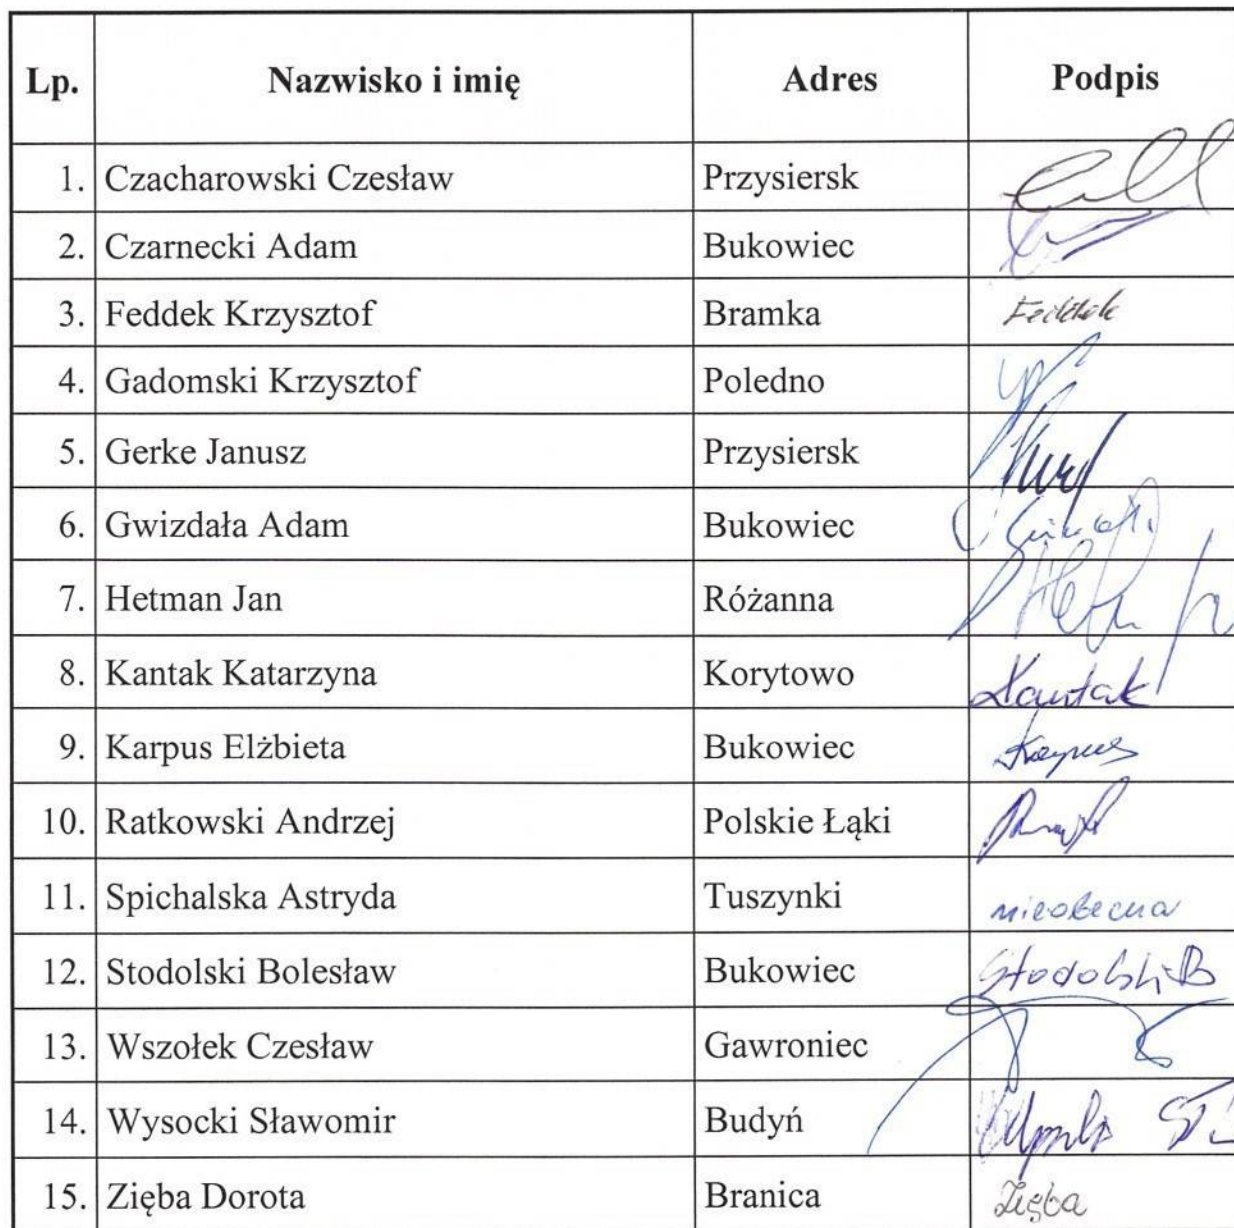 Lp. Nazwisko i imię Adres Podpis
1. Czacharowski Czesław Przysiersk
2. Czarnecki Adam Bukowiec
3. Feddek Krzysztof Bramka Feddek
4. Gadomski Krzysztof Poledno
5. Gerke Janusz Przysiersk
6. Gwizdała Adam Bukowiec
7. Hetman Jan Różanna
8. Kantak Katarzyna Korytowo Kantak
9. Karpus Elżbieta Bukowiec Karpus
10. Ratkowski Andrzej Polskie Łąki
11. Spichalska Astryda Tuszynki nieobecna
12. Stodolski Bolesław Bukowiec Stodolski B
13. Wszołek Czesław Gawroniec
14. Wysocki Sławomir Budyń
15. Zięba Dorota Branica Zięba